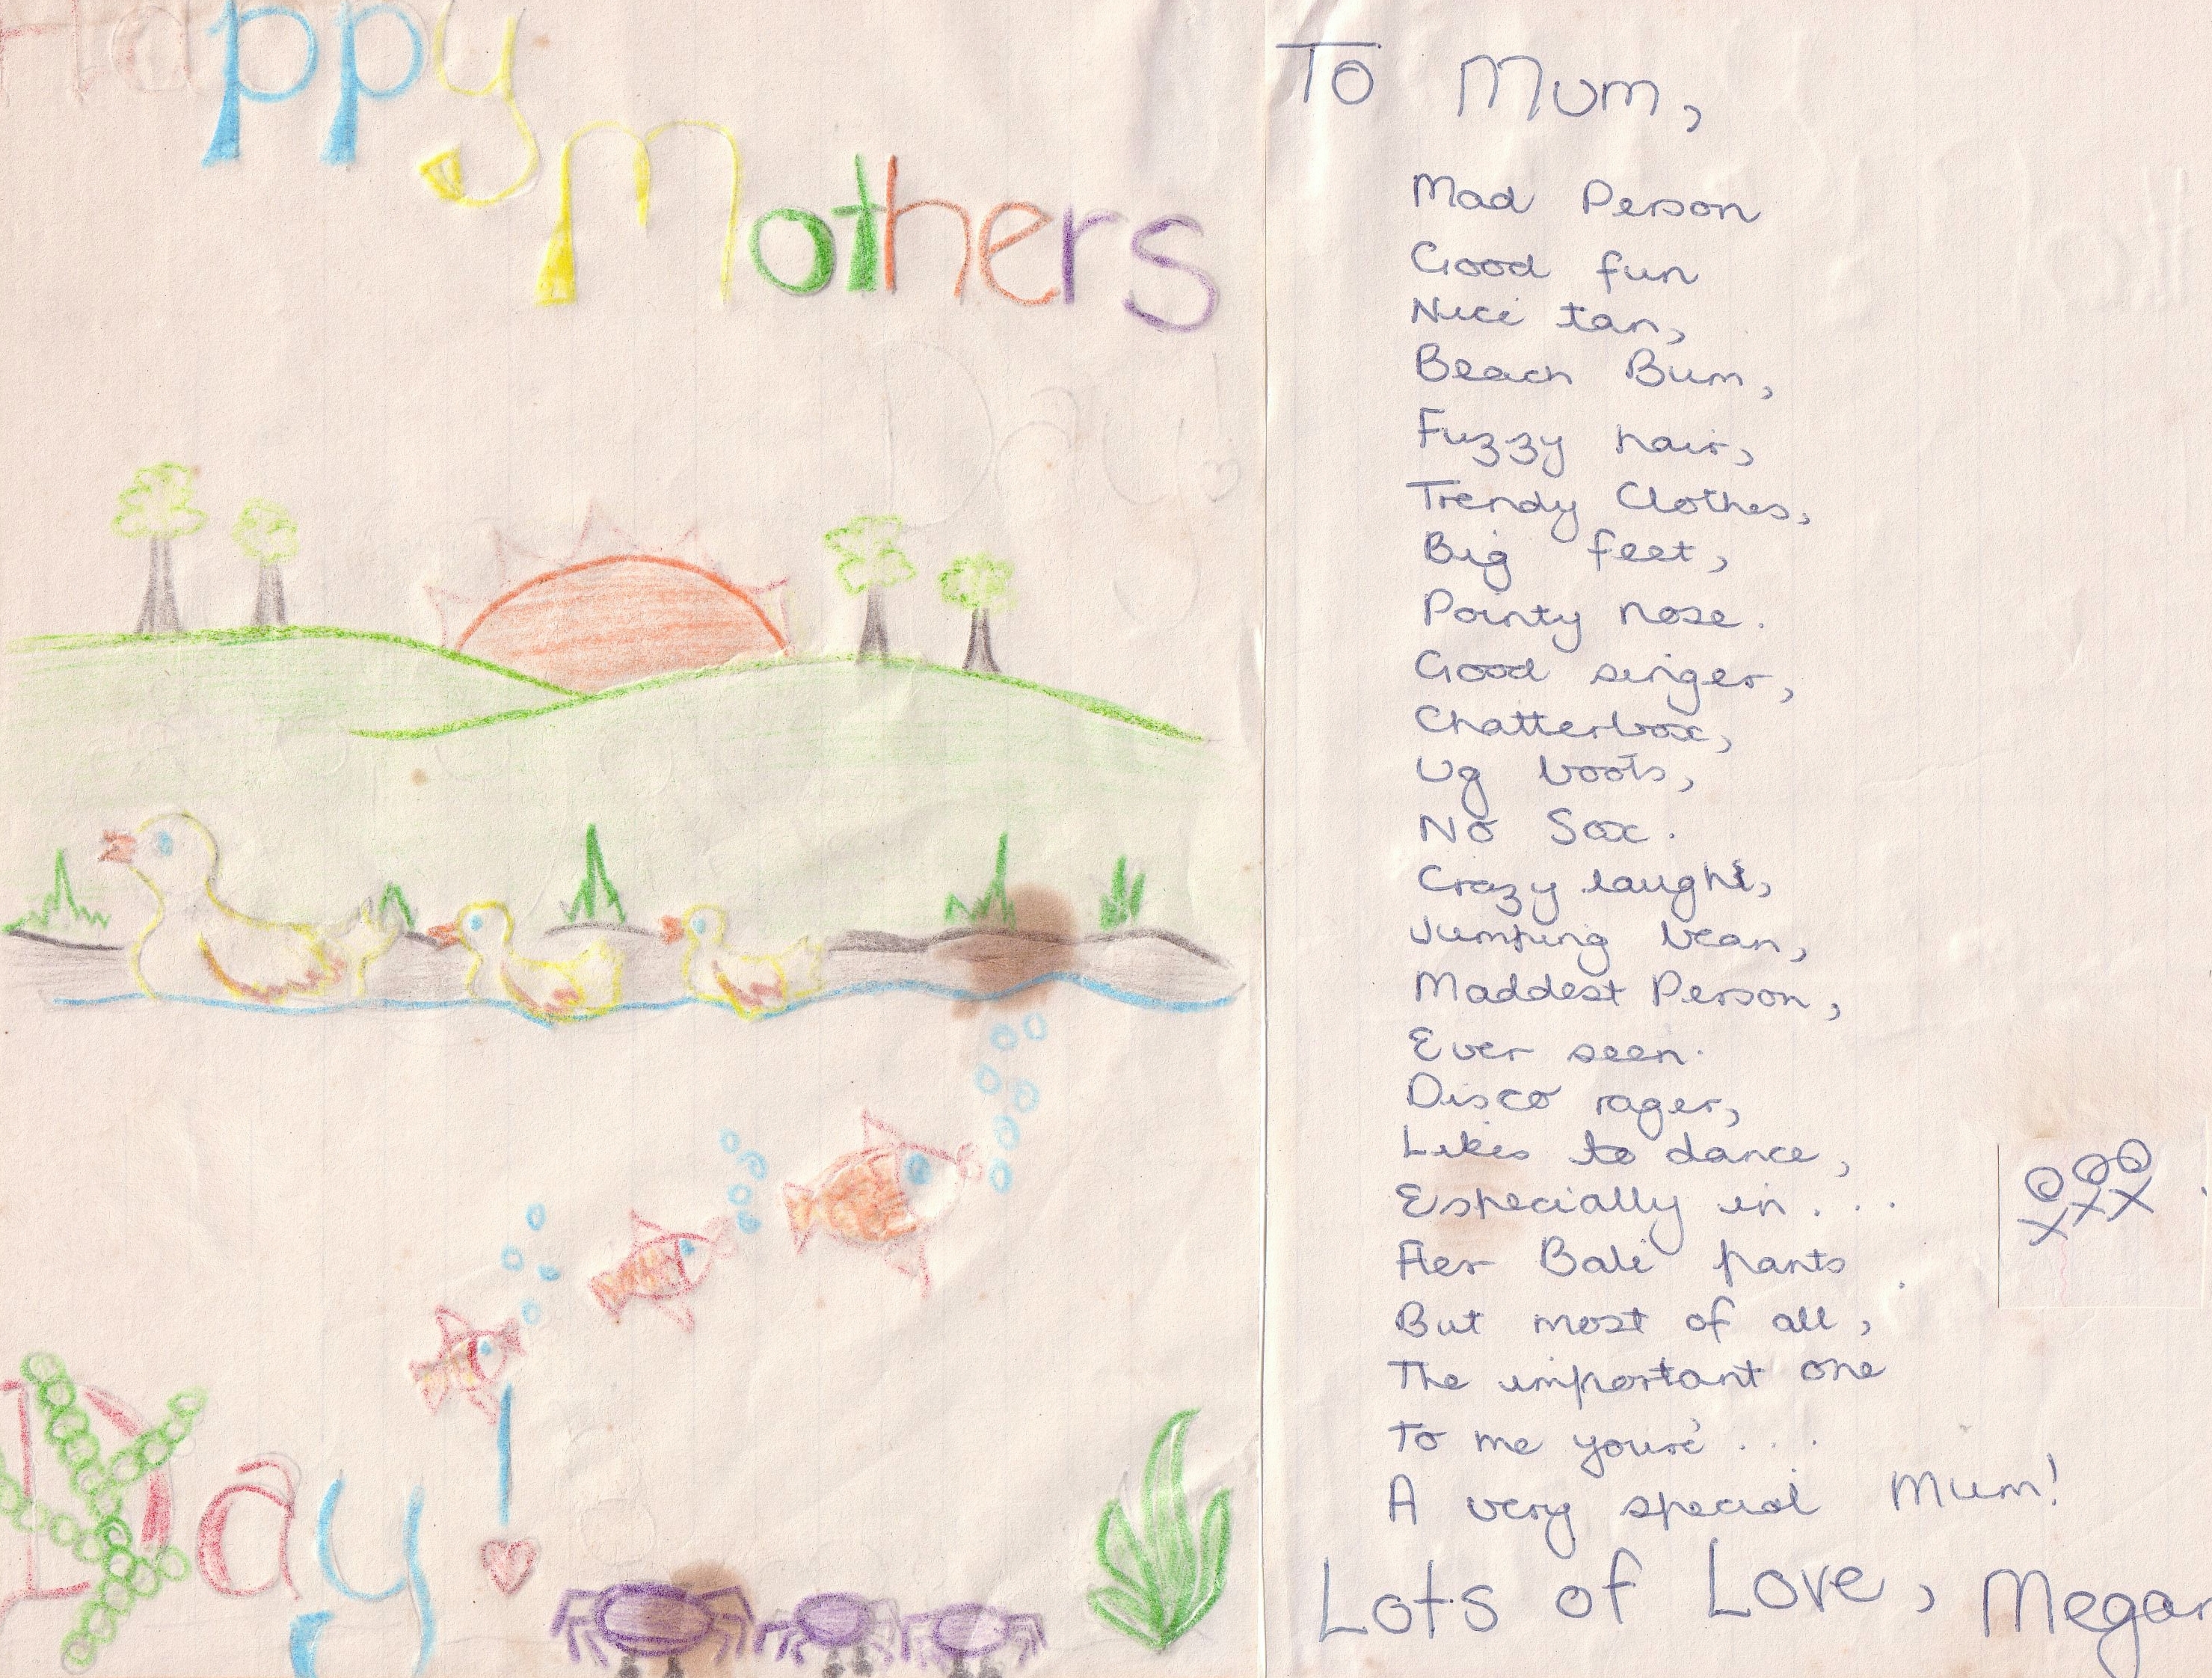 Happy
Mothers
Day!
Day!
To Mum,
Mad Person
Good fun
Nice tan,
Beach Bum,
Fuzzy hair,
Trendy Clothes,
Big feet,
Pointy nose.
Good singer,
Chatterbox,
Ug boots,
No Sox.
Crazy laugh,
Jumping bean,
Maddest Person,
Ever seen.
Disco rager,
Likes to dance,
Especially in . . .
Her Bali pants.
But most of all,
The important one
To me youre' . . .
A very special Mum!
Lots of Love, Megan